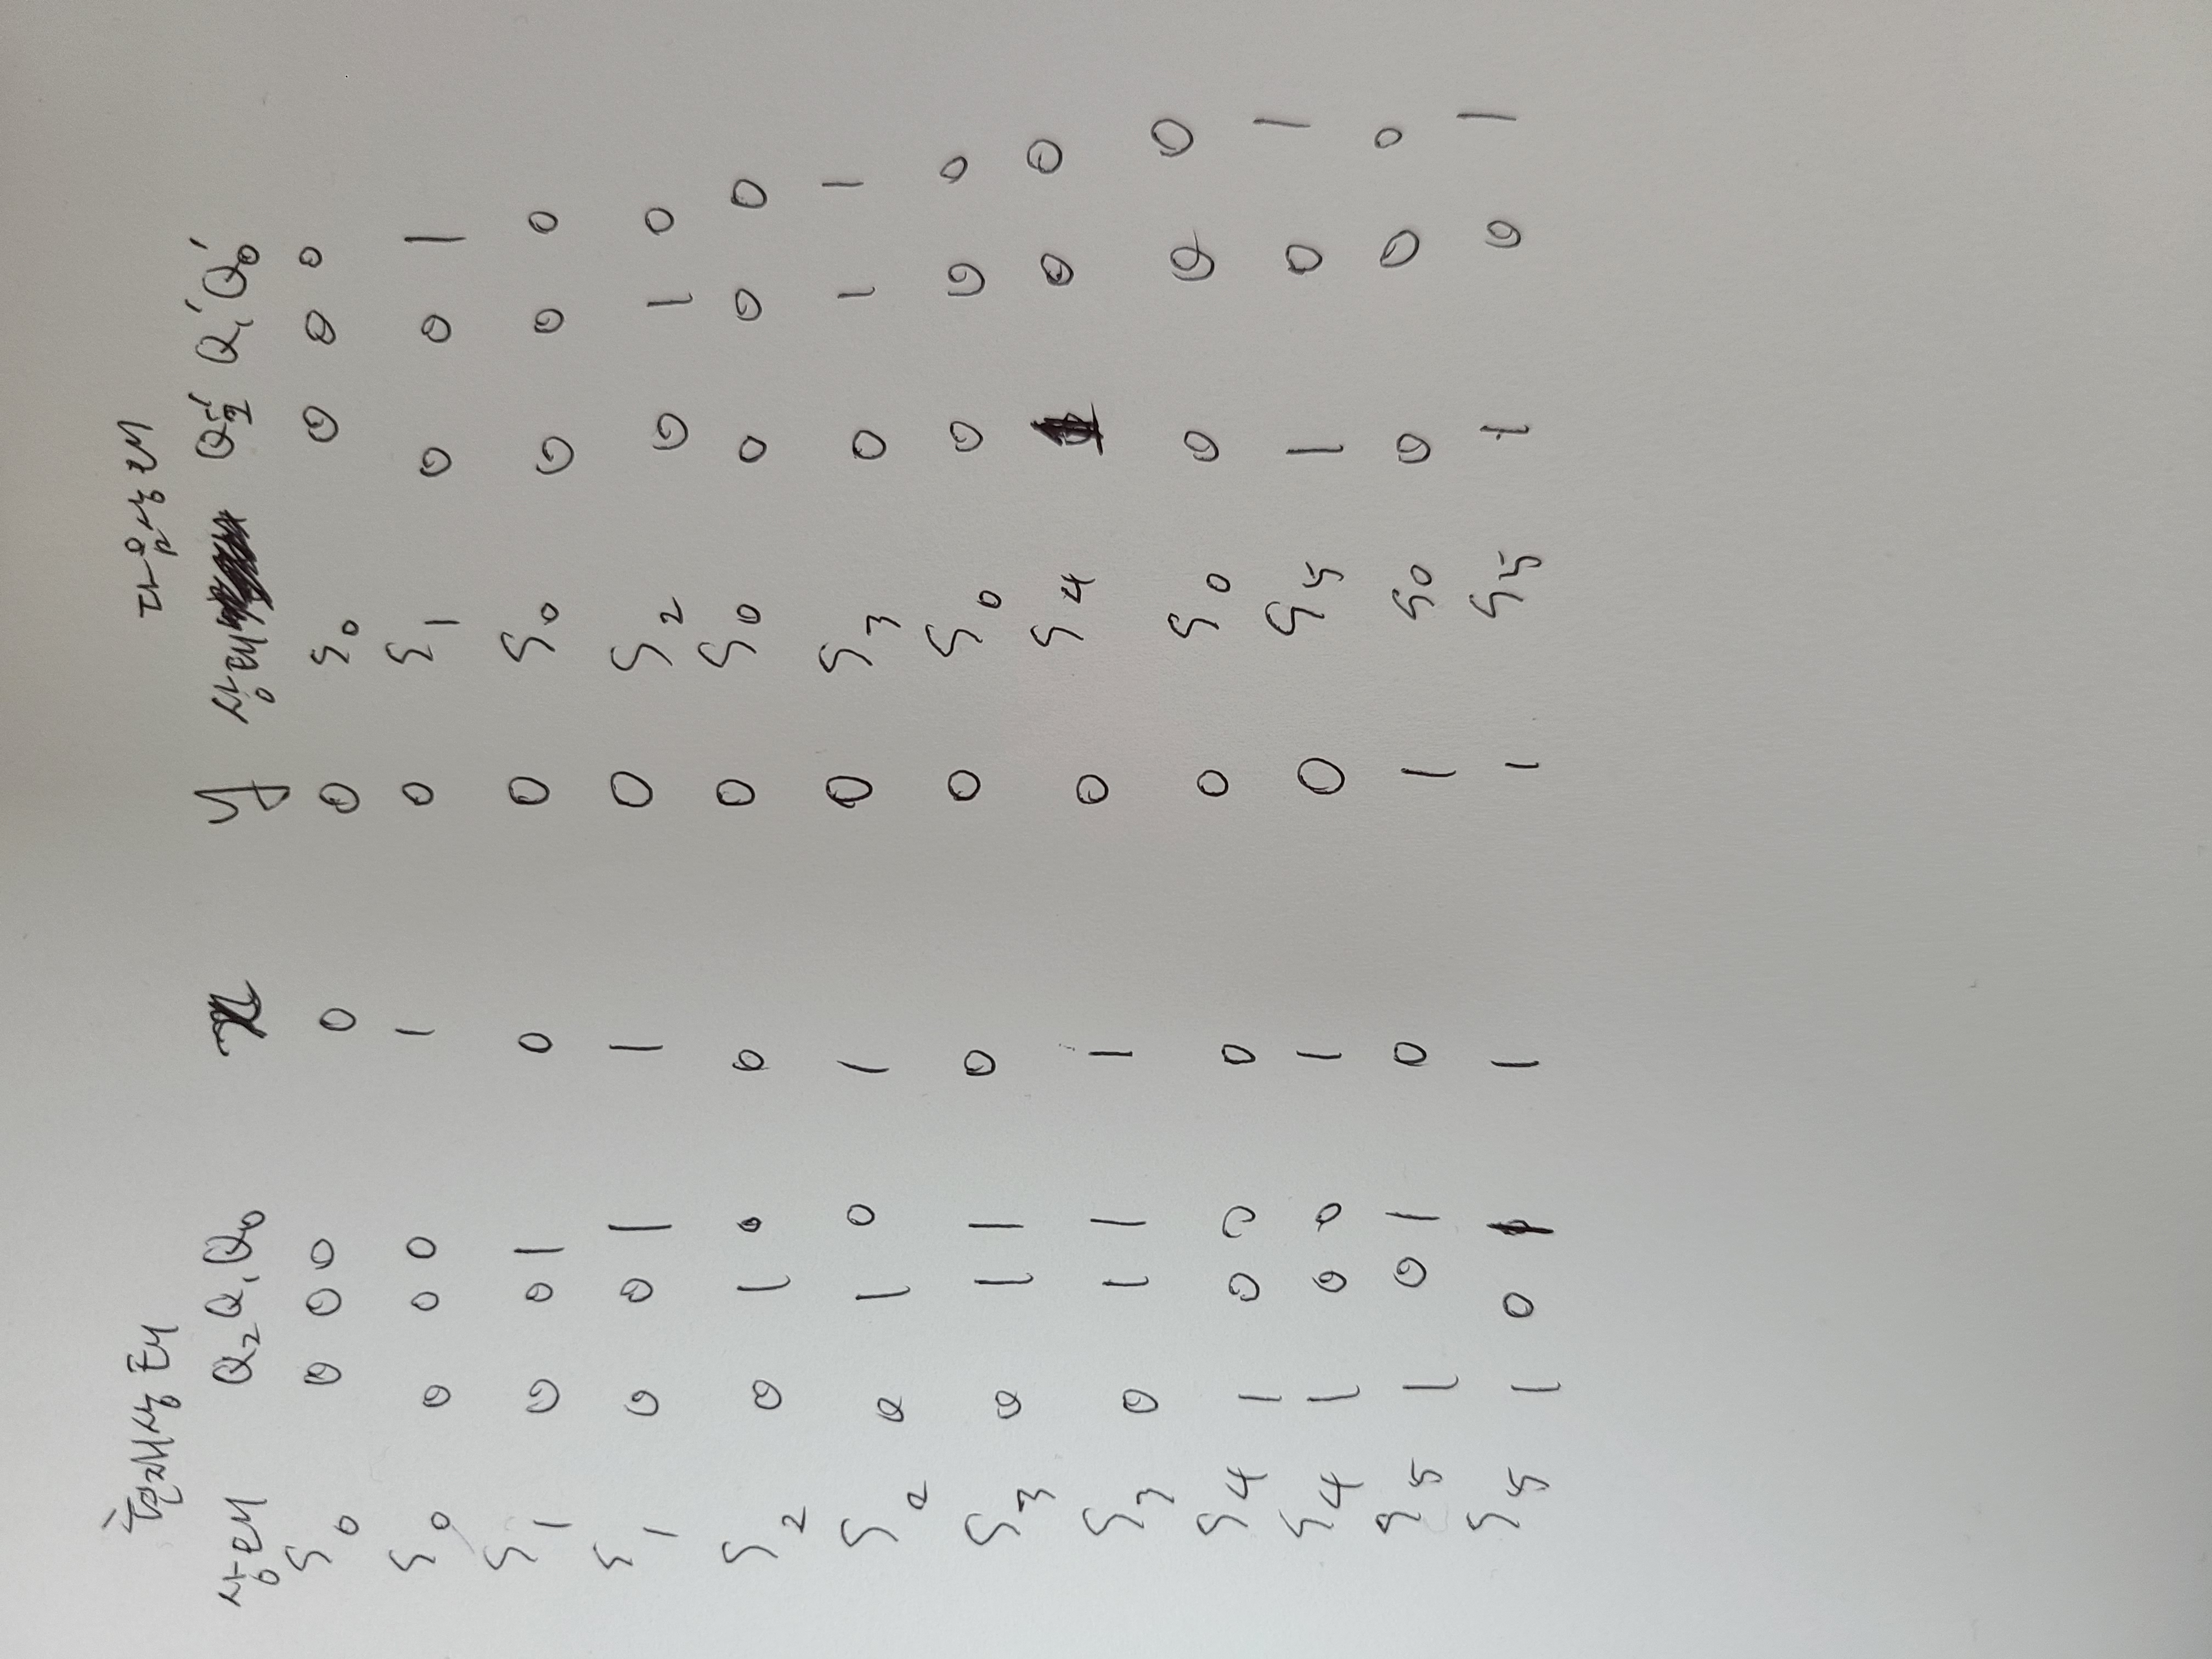 현재상태 다음상태
상태 Q₂ Q₁ Q₀ x y 상태 Q₂' Q₁' Q₀'
S₀ 0 0 0 0 0 S₀ 0 0 0
S₀ 0 0 0 1 0 S₁ 0 0 1
S₁ 0 0 1 0 0 S₀ 0 0 0
S₁ 0 0 1 1 0 S₂ 0 1 0
S₂ 0 1 0 0 0 S₀ 0 0 0
S₂ 0 1 0 1 0 S₃ 0 1 1
S₃ 0 1 1 0 0 S₀ 0 0 0
S₃ 0 1 1 1 0 S₄ 1 0 0
S₄ 1 0 0 0 0 S₀ 0 0 0
S₄ 1 0 0 1 0 S₅ 1 0 1
S₅ 1 0 1 0 1 S₀ 0 0 0
S₅ 1 0 1 1 1 S₅ 1 0 1